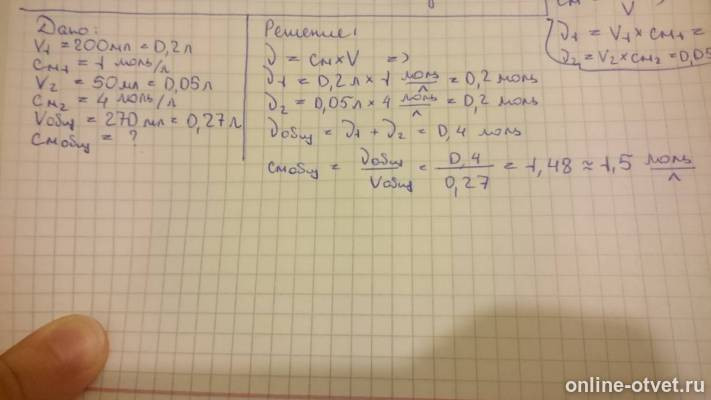 Дано:
V₁ = 200мл = 0,2л
Cм₁ = 1 моль/л
V₂ = 50мл = 0,05л
Cм₂ = 4 моль/л
Vобщ = 270 мл = 0,27л
Cмобщ = ?
Решение:
ν = Cм×V =>
ν₁ = 0,2л × 1 моль/л = 0,2 моль
ν₂ = 0,05л × 4 моль/л = 0,2 моль
νобщ = ν₁ + ν₂ = 0,4 моль
Cмобщ = νобщ/Vобщ = 0,4/0,27 = 1,48 ≈ 1,5 моль/л
V
ν₁ = V₁ × Cм₁ =
ν₂ = V₂ × Cм₂ = 0,05
online-otvet.ru